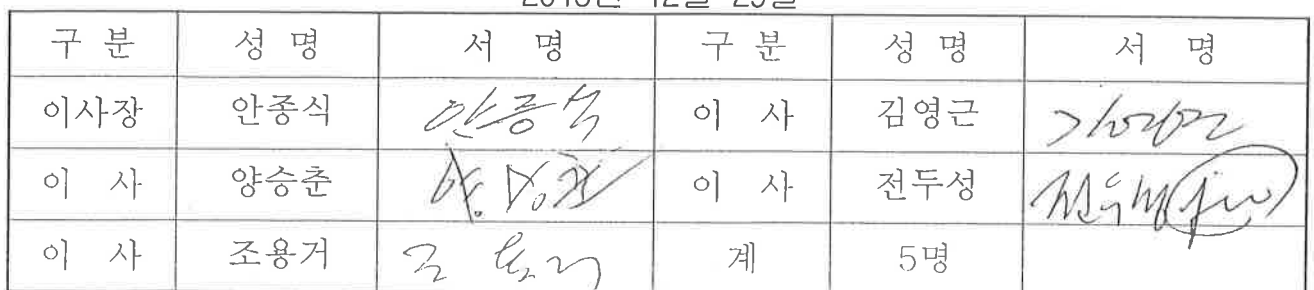 구 분 성 명 서 명 구 분 성 명 서 명
이사장 안종식 안종식 이 사 김영근
이 사 양승춘 이 사 전두성
이 사 조용거 계 5명